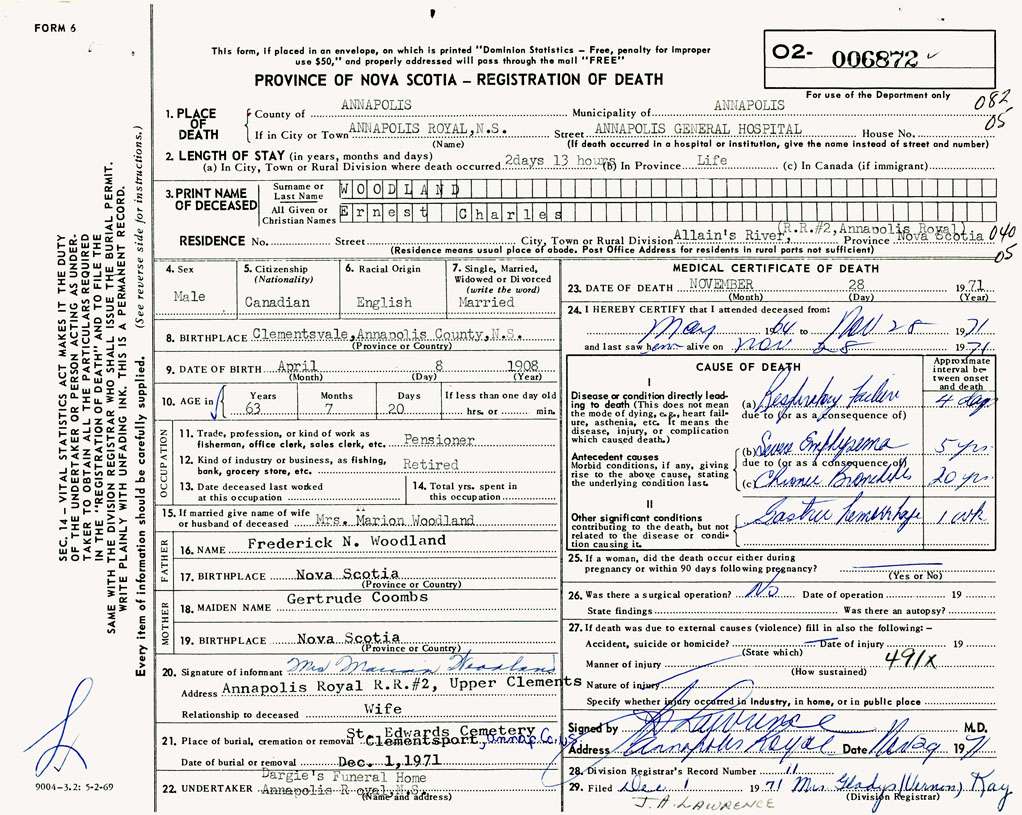 FORM 6
This form, if placed in an envelope, on which is printed "Dominion Statistics – Free, penalty for improper
use $50," and properly addressed will pass through the mail "FREE"
PROVINCE OF NOVA SCOTIA – REGISTRATION OF DEATH
O2- 006872
For use of the Department only
082
05
1. PLACE OF DEATH
County of ANNAPOLIS Municipality of ANNAPOLIS
If in City or Town ANNAPOLIS ROYAL,N.S. Street ANNAPOLIS GENERAL HOSPITAL House No.
(Name) (If death occurred in a hospital or institution, give the name instead of street and number)
2. LENGTH OF STAY (in years, months and days)
(a) In City, Town or Rural Division where death occurred 2days 13 hours (b) In Province Life (c) In Canada (if immigrant)
3. PRINT NAME OF DECEASED
Surname or Last Name WOODLAND
All Given or Christian Names Ernest Charles
(R.R.#2, Annapolis Royal)
RESIDENCE No. Street City, Town or Rural Division Allain's River, Province Nova Scotia 040
05
(Residence means usual place of abode. Post Office Address for residents in rural parts not sufficient)
4. Sex
Male
5. Citizenship
(Nationality)
Canadian
6. Racial Origin
English
7. Single, Married,
Widowed or Divorced
(write the word)
Married
8. BIRTHPLACE Clementsvale,Annapolis County,N.S.
(Province or Country)
9. DATE OF BIRTH April 8 1908
(Month) (Day) (Year)
10. AGE in
Years Months Days If less than one day old
63 7 20 hrs. or min.
OCCUPATION
11. Trade, profession, or kind of work as
fisherman, office clerk, sales clerk, etc. Pensioner
12. Kind of industry or business, as fishing,
bank, grocery store, etc. Retired
13. Date deceased last worked
at this occupation
14. Total yrs. spent in
this occupation
15. If married give name of wife
or husband of deceased Mrs. Marion Woodland
FATHER
16. NAME Frederick N. Woodland
17. BIRTHPLACE Nova Scotia
(Province or Country)
MOTHER
18. MAIDEN NAME Gertrude Coombs
19. BIRTHPLACE Nova Scotia
(Province or Country)
20. Signature of informant Mrs Marion Woodland
Address Annapolis Royal R.R.#2, Upper Clements
Relationship to deceased Wife
21. Place of burial, cremation or removal St. Edwards Cemetery
Clementsport, Annap Co. N.S.
Date of burial or removal Dec. 1,1971
22. UNDERTAKER Dargie's Funeral Home
Annapolis Royal,N.S.
(Name and address)
MEDICAL CERTIFICATE OF DEATH
23. DATE OF DEATH NOVEMBER 28 1971
(Month) (Day) (Year)
24. I HEREBY CERTIFY that I attended deceased from:
May 1964 to Nov 28 1971
and last saw him alive on Nov 28 1971
CAUSE OF DEATH
Approximate
interval be-
tween onset
and death
I
Disease or condition directly lead-
ing to death (This does not mean
the mode of dying, e.g., heart fail-
ure, asthenia, etc. It means the
disease, injury, or complication
which caused death.)
(a) Respiratory Failure 4 days
due to (or as a consequence of)
Antecedent causes
Morbid conditions, if any, giving
rise to the above cause, stating
the underlying condition last.
(b) Severe Emphysema 5 yrs.
due to (or as a consequence of)
(c) Chronic Bronchitis 20 yrs.
II
Other significant conditions
contributing to the death, but not
related to the disease or condi-
tion causing it.
Gastric hemorrhage 1 wk
25. If a woman, did the death occur either during
pregnancy or within 90 days following pregnancy?
(Yes or No)
26. Was there a surgical operation? No Date of operation 19
State findings Was there an autopsy?
27. If death was due to external causes (violence) fill in also the following: –
Accident, suicide or homicide? Date of injury 19
(State which)
Manner of injury 491X
(How sustained)
Nature of injury
Specify whether injury occurred in industry, in home, or in public place
Signed by Lawrence M.D.
Address Annapolis Royal Date Nov 29 1971
28. Division Registrar's Record Number 11
29. Filed Dec 1 1971 Mrs. Gladys (Vernon) Kay
(Division Registrar)
J.A. LAWRENCE
SEC. 14 – VITAL STATISTICS ACT MAKES IT THE DUTY
OF THE UNDERTAKER OR PERSON ACTING AS UNDER-
TAKER TO OBTAIN ALL THE PARTICULARS REQUIRED
IN THE "REGISTRATION OF DEATH" AND TO FILE THE
SAME WITH THE DIVISION REGISTRAR WHO SHALL ISSUE THE BURIAL PERMIT.
WRITE PLAINLY WITH UNFADING INK. THIS IS A PERMANENT RECORD.
Every item of information should be carefully supplied. (See reverse side for instructions.)
9004-3.2: 5-2-69